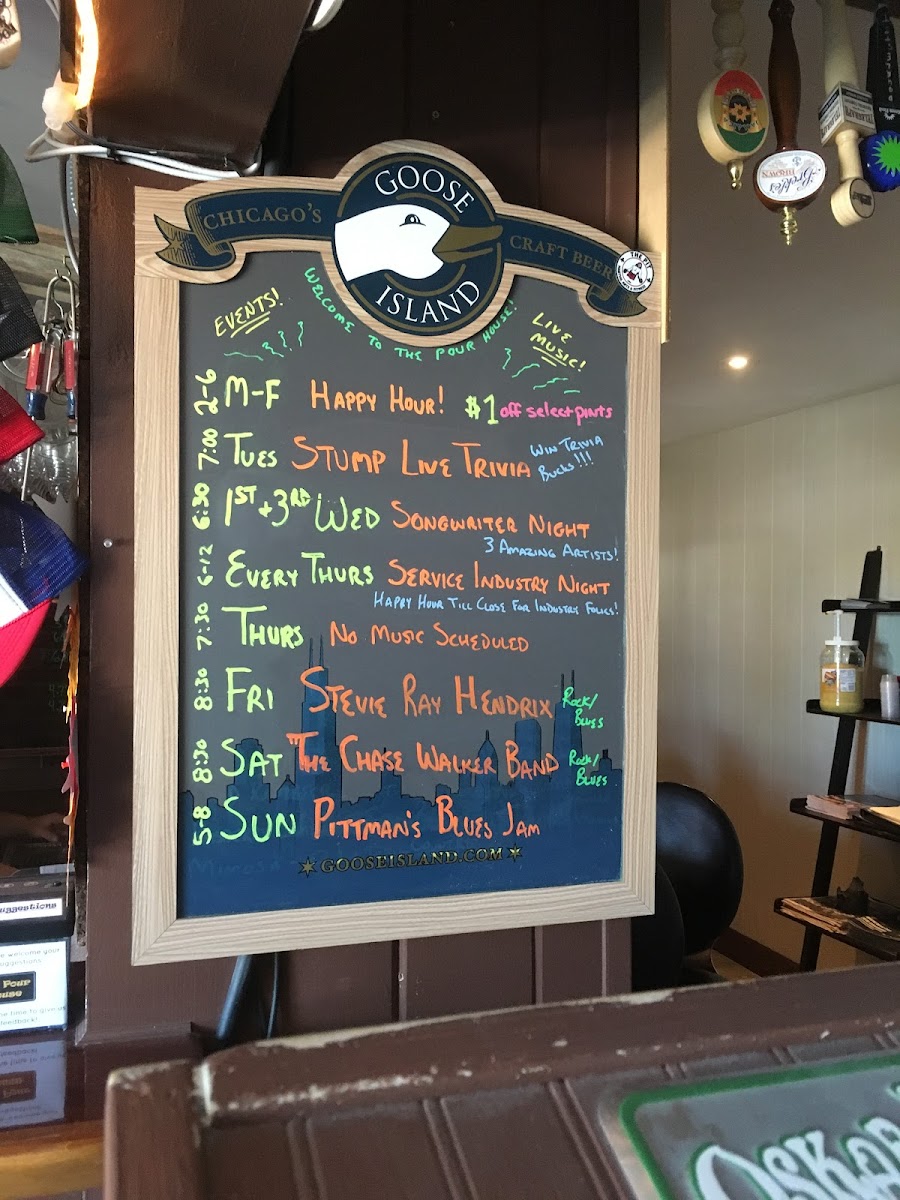 GOOSE
CHICAGO'S
CRAFT BEER
ISLAND
THE PIT
EVENTS!
WELCOME TO THE POUR HOUSE!
LIVE
MUSIC!
2-6 M-F HAPPY HOUR! $1 off select pints
7:00 TUES STUMP LIVE TRIVIA WIN TRIVIA
BUCKS!!!
6:30 1ST + 3RD WED SONGWRITER NIGHT
3 AMAZING ARTISTS!
6-12 EVERY THURS SERVICE INDUSTRY NIGHT
HAPPY HOUR TILL CLOSE FOR INDUSTRY FOLKS!
7:30 THURS NO MUSIC SCHEDULED
8:30 FRI STEVIE RAY HENDRIX ROCK/
BLUES
8:30 SAT THE CHASE WALKER BAND ROCK/
BLUES
5-8 SUN PITTMAN'S BLUES JAM
GOOSEISLAND.COM
uggestions
welcome your
uggestions
Pour
use
time to give us
feedback!
BROWN
OSKAR